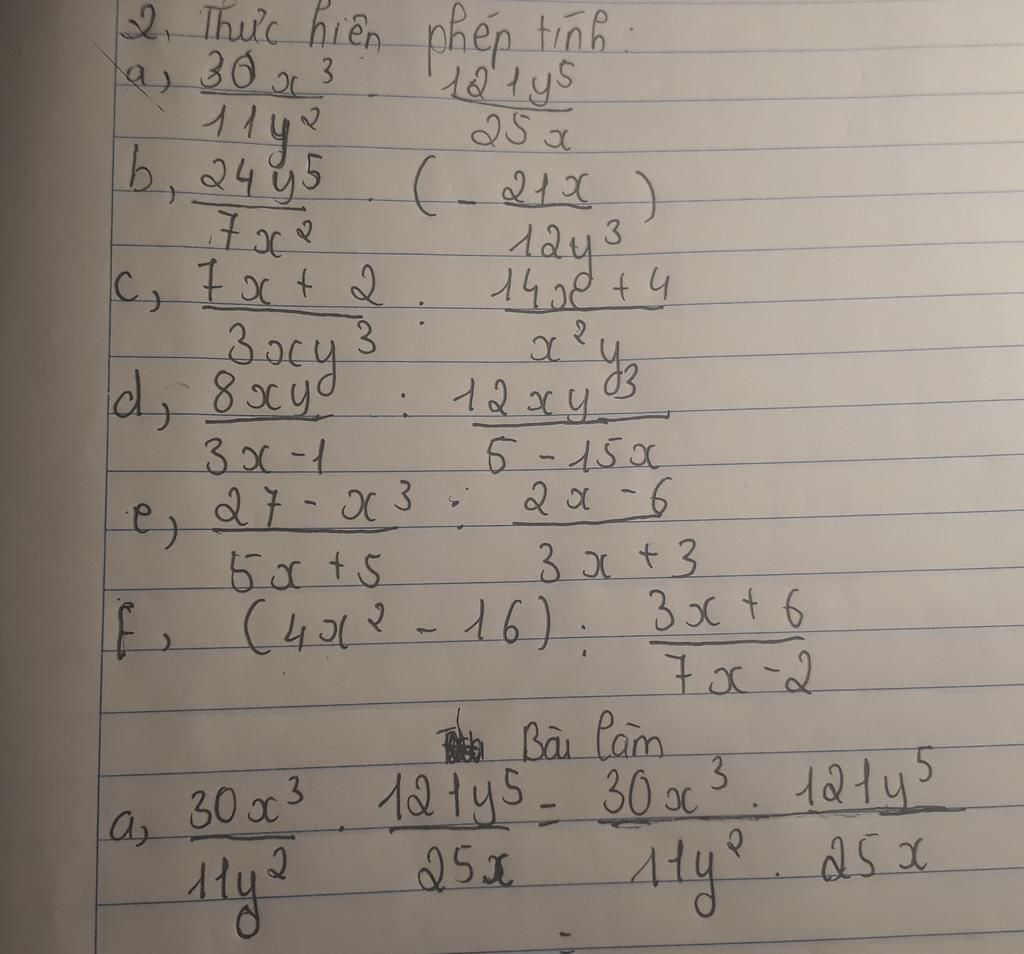 2, Thực hiện phép tính:
a, 30x³/11y² . 121y⁵/25x
b, 24y⁵/7x² . (- 21x/12y³)
c, 7x + 2/3xy³ : 14x + 4/x²y
d, 8xy/3x - 1 : 12xy³/5 - 15x
e, 27 - x³/5x + 5 : 2x - 6/3x + 3
f, (4x² - 16) : 3x + 6/7x - 2
Bài làm
a, 30x³/11y² . 121y⁵/25x = 30x³ . 121y⁵/11y² . 25x
=